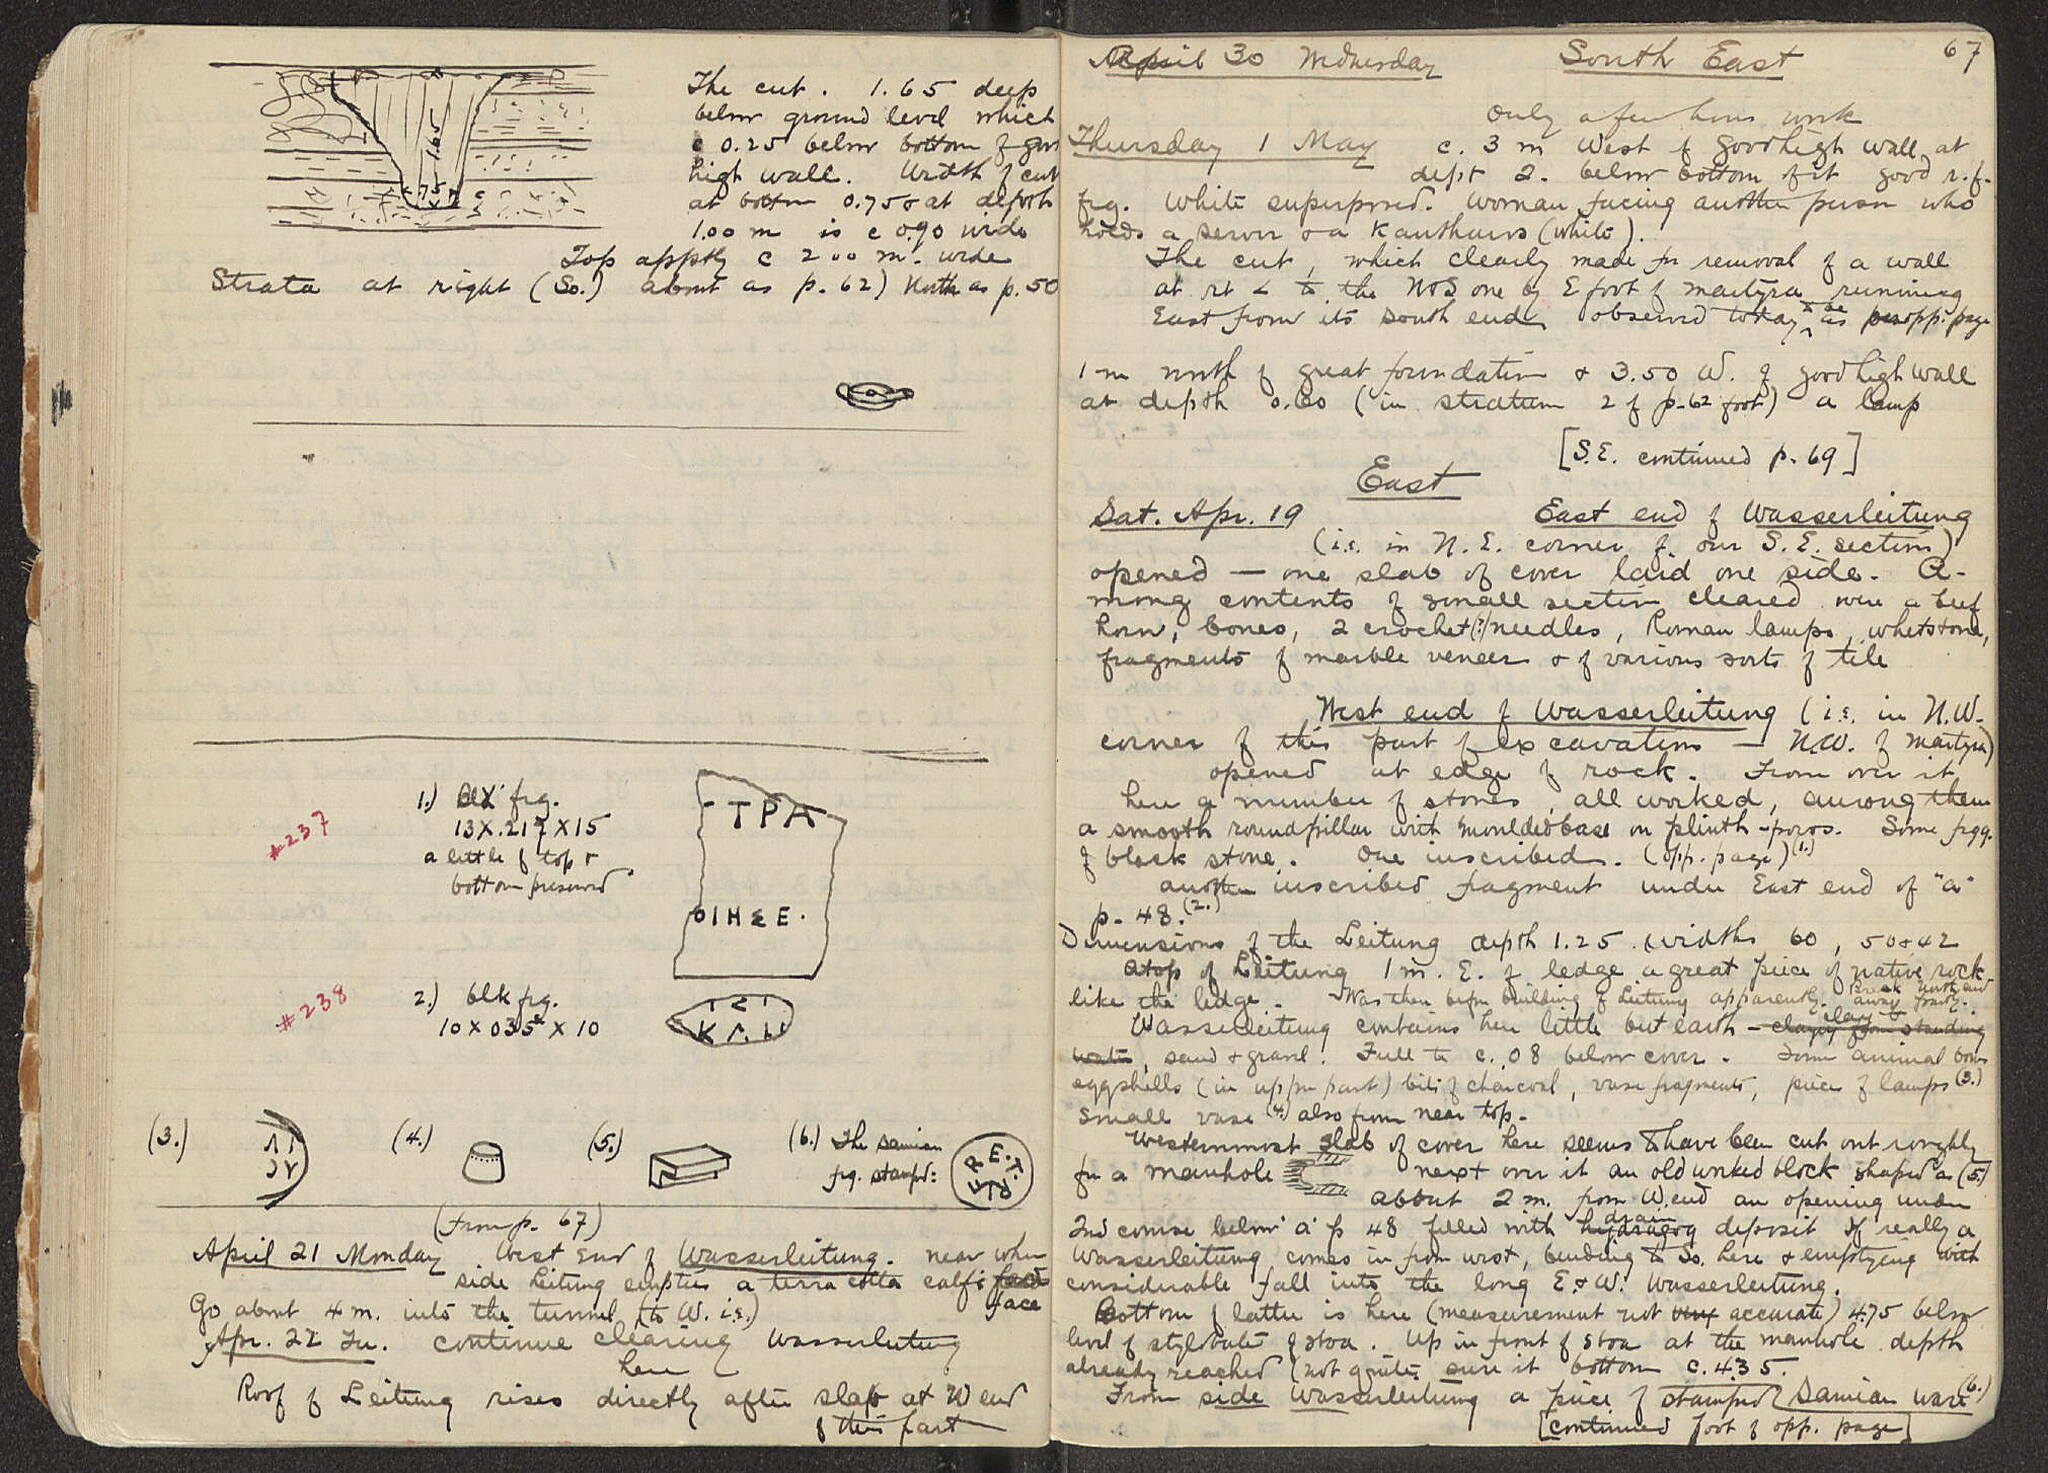 The cut. 1.65 deep
below ground level which
c 0.25 below bottom of good
high wall. Width of cut
at bottom 0.75 & at depth
1.00 m is c 0.90 wide
Top apptly c 2.00 m. wide
Strata at right (So.) about as p. 62) North as p. 50
1.65
.75
#237
1.) Blk frg.
13 X .217 X 15
a little of top &
bottom preserved
TPA
OIHΣE.
#238
2.) blk frg.
10 X 035 X 10
(3.)
(4.)
(5.)
(6.) The Samian
frg. stamped:
(from p. 67)
April 21 Monday West End of Wasserleitung. near where
side Leitung empties a terra cotta calf's
face
Go about 4 m. into the tunnel (to W. i.e.)
Apr. 22 Tu. continue clearing Wasserleitung
here
Roof of Leitung rises directly after slab at W end
of this part
67
April 30 Wednesday South East
Only a few hours work
Thursday 1 May c. 3 m West of good high wall at
dept 2. below bottom of it good r.f.
frg. White superposed. Woman facing another person who
holds a & a Kantharos (white).
The cut, which clearly made for removal of a wall
at rt ∠ to the N & S one by E foot of martyra running
East from its south end observed today as opp. page
1 m north of great foundation & 3.50 W. of good high wall
at depth 0.60 (in stratum 2 of p. 62 foot) a lamp
[S.E. continued p. 69]
East
Sat. Apr. 19 East end of Wasserleitung
(i.e. in N.E. corner of our S.E. section)
opened — one slab of cover laid one side. A-
mong contents of small section cleared were a beef
horn, bones, 2 crochet(?) needles, Roman lamps, whetstone,
fragments of marble veneer & of various sorts of tile
West end of Wasserleitung (i.e. in N.W.
corner of this part of excavation — N.W. of martyra)
opened at edge of rock. From over it
here a number of stones, all worked, among them
a smooth round pillar with moulded base on plinth - poros. Some frgg.
of black stone. One inscribed. (opp. page) (1.)
another inscribed fragment under East end of "a"
p. 48. (2.)
Dimensions of the Leitung depth 1.25 widths 60, 50 & 42
Atop of Leitung 1 m. E. of ledge a great piece of native rock
like the ledge. Was there before building of Leitung apparently.
Wasserleitung contains here little but earth — clayey from standing
water, sand & gravel. Full to c. 08 below cover. Some animal bones
eggshells (in upper part) bits of charcoal, vase fragments, piece of lamps (3.)
small vase (4.) also from near top.
Westernmost slab of cover here seems to have been cut out roughly
for a manhole next over it an old worked block shaped as (5.)
about 2 m. from W. end an opening under
2nd course below a p 48 filled with drain deposit If really a
Wasserleitung comes in from west, bending to So. here & emptying with
considerable fall into the long E. & W. Wasserleitung.
Bottom of latter is here (measurement not very accurate) 4.75 below
level of stylobate of stoa. Up in front of stoa at the manhole depth
already reached (not quite sure it bottom c. 4.35.
From side Wasserleitung a piece of stamped Samian ware (6.)
[continued foot of opp. page]